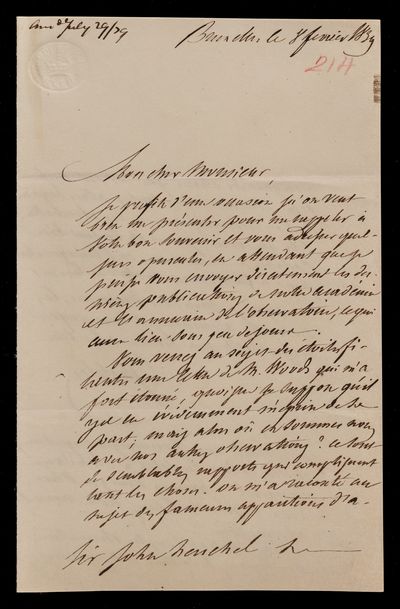 Ansd July 29/39
Bruxelles, le 8 fevrier 1839
214
Mon cher Monsieur,
Je profite d'une occasion qu'on veut
bien me présenter pour me rappeler à
votre bon souvenir et vous adresser quel-
ques opuscules, en attendant que je
puisse vous envoyer directement les der-
nières publications de notre académie
et les annuaires de l'observatoire, ce qui
aura lieu sous peu de jours.
Vous verrez au sujet des étoiles fi-
lantes une lettre de M. Woods qui m'a
fort étonné, quoique je suppose qu'il
y ait eu évidemment méprise de sa
part; mais alors où en sommes nous
avec nos autres observations? ce sont
de semblables rapports qui compliquent
tant les choses. On m'a raconté au
sujet des fameuses apparitions d'a-
Sir John Herschel